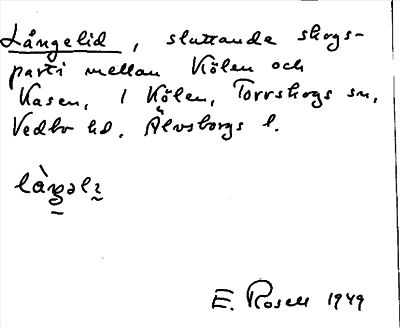 Långelid, sluttande skogs-
parti mellan Kölen och
Kasen, 1 Kölen, Torrskogs sn,
Vedbo hd. Älvsborgs l.
E. Rosell 1949